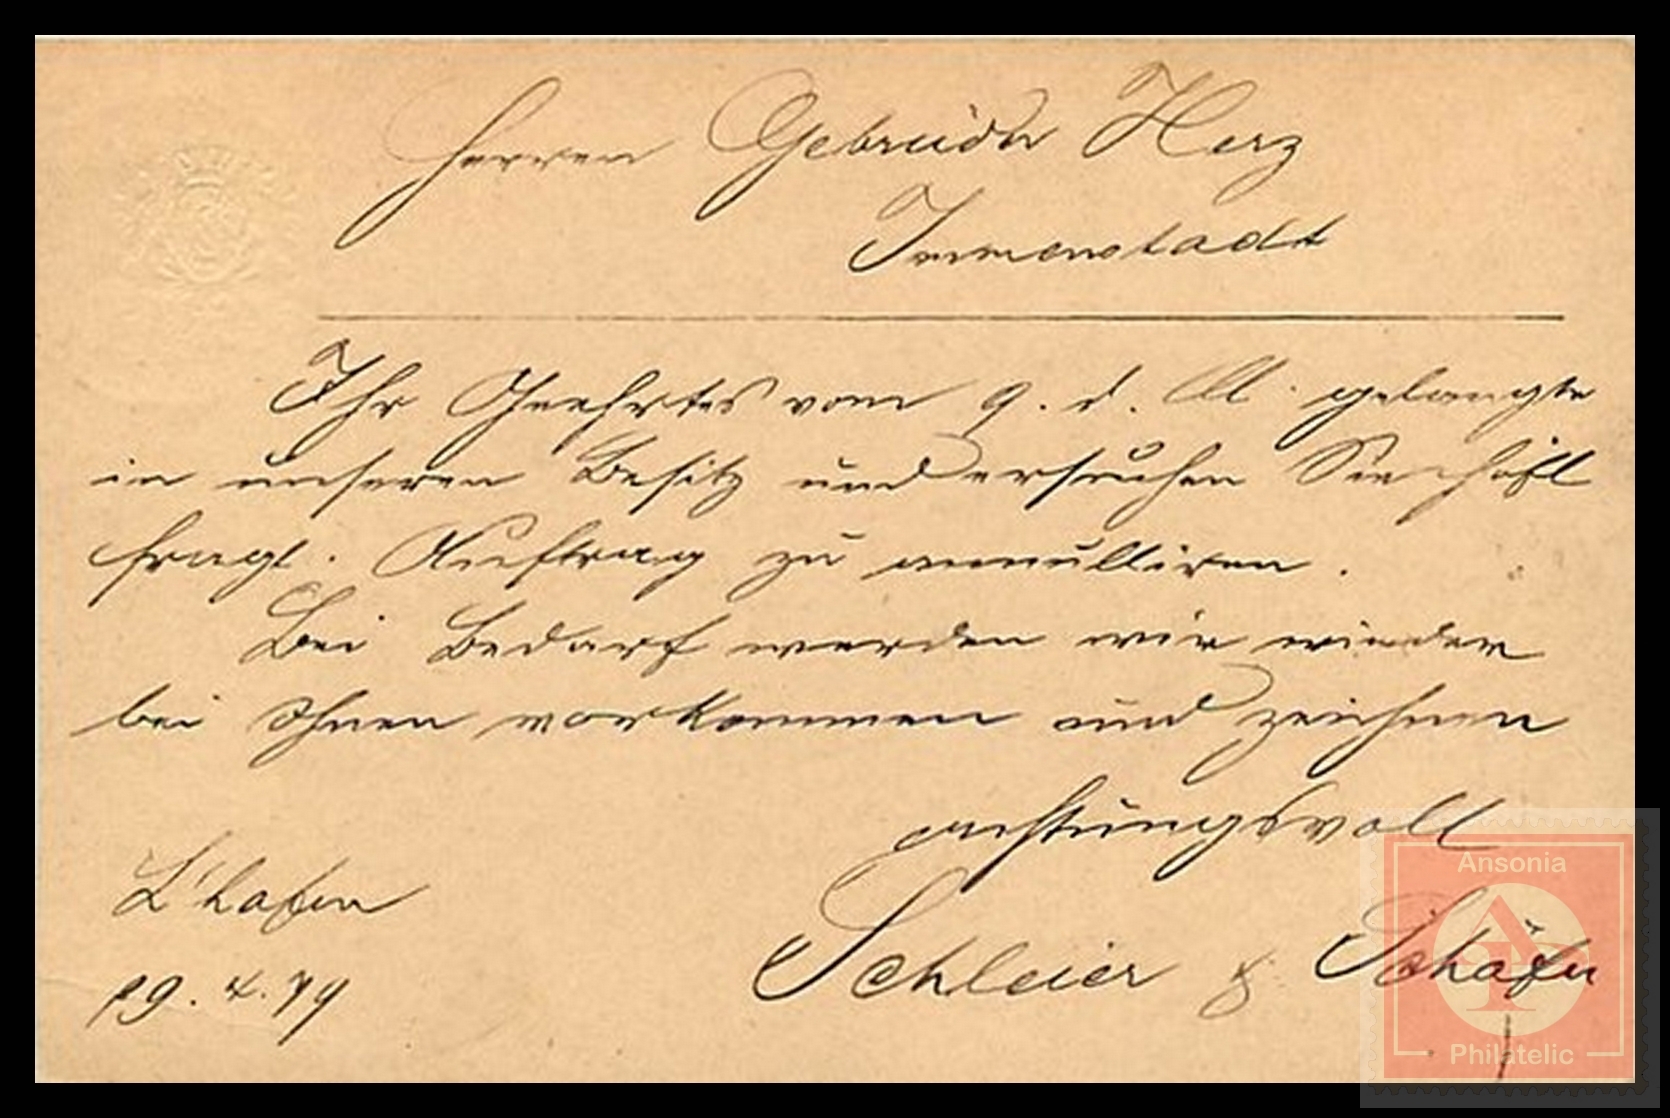 Herren Gebrüder Herz
Immenstadt
Ihr Geehrtes vom 9. d. M. gelangte
in unseren Besitz und ersuchen Sie höfl
fragl. Auftrag zu annulliren.
Bei Bedarf werden wir wieder
bei Ihnen vorkommen und zeichnen
achtungsvoll
L'hafen
Schleier & Schäfer
19. 4. 79
Ansonia
Philatelic